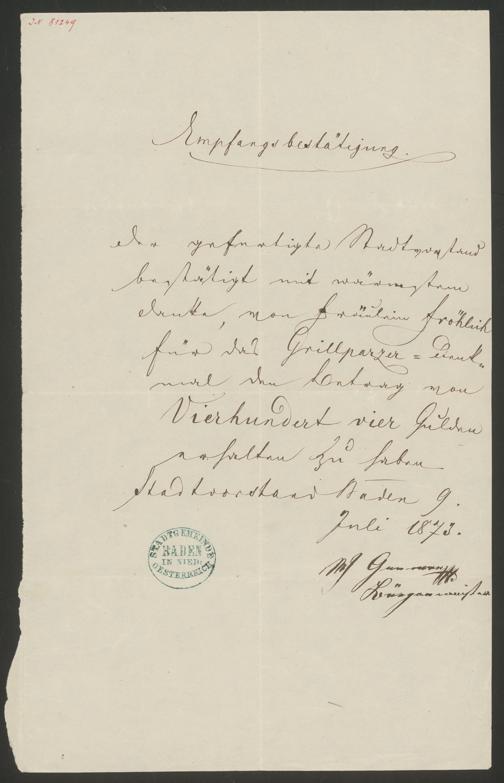 I.N 81249
Empfangsbestätigung.
der gefertigte Stadtvorstand
bestätigt mit wärmstem
Danke, von Fräulein Fröhlich
für das Grillparzer=Denk=
mal den Betrag von
Vierhundert vier Gulden
erhalten zu haben
Stadtvorstand Baden 9.
Juli 1873.
Bürgermeister
STADTGEMEINDE
BADEN
IN NIED:
OESTERREICH